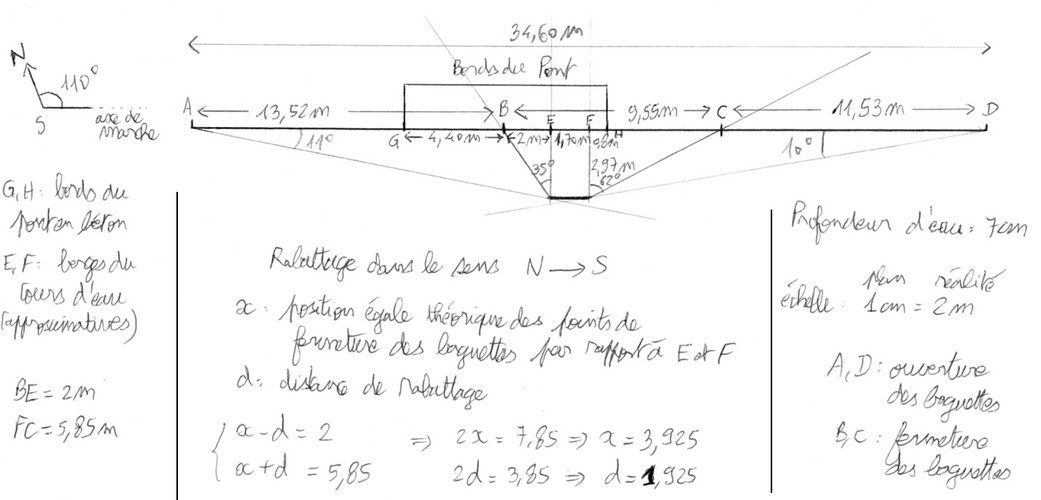 34,60 m
Bords du Pont
N
110°
S
axe de
marche
A
13,52 m
B
E
F
9,55 m
C
11,53 m
D
11°
G
4,40 m
2m
1,70m
0,8m
H
35°
2,97m
62°
10°
G, H : bords du
pont en béton
E, F : berges du
cours d'eau
(approximatives)
BE = 2 m
FC = 5,85 m
Rabattage dans le sens N → S
x : position égale théorique des points de
fermeture des baguettes par rapport à E et F
d : distance de rabattage
x - d = 2 ⇒ 2x = 7,85 ⇒ x = 3,925
x + d = 5,85 2d = 3,85 ⇒ d = 1,925
Profondeur d'eau = 7cm
plan réalité
échelle : 1 cm = 2 m
A, D : ouverture
des baguettes
B, C : fermeture
des baguettes